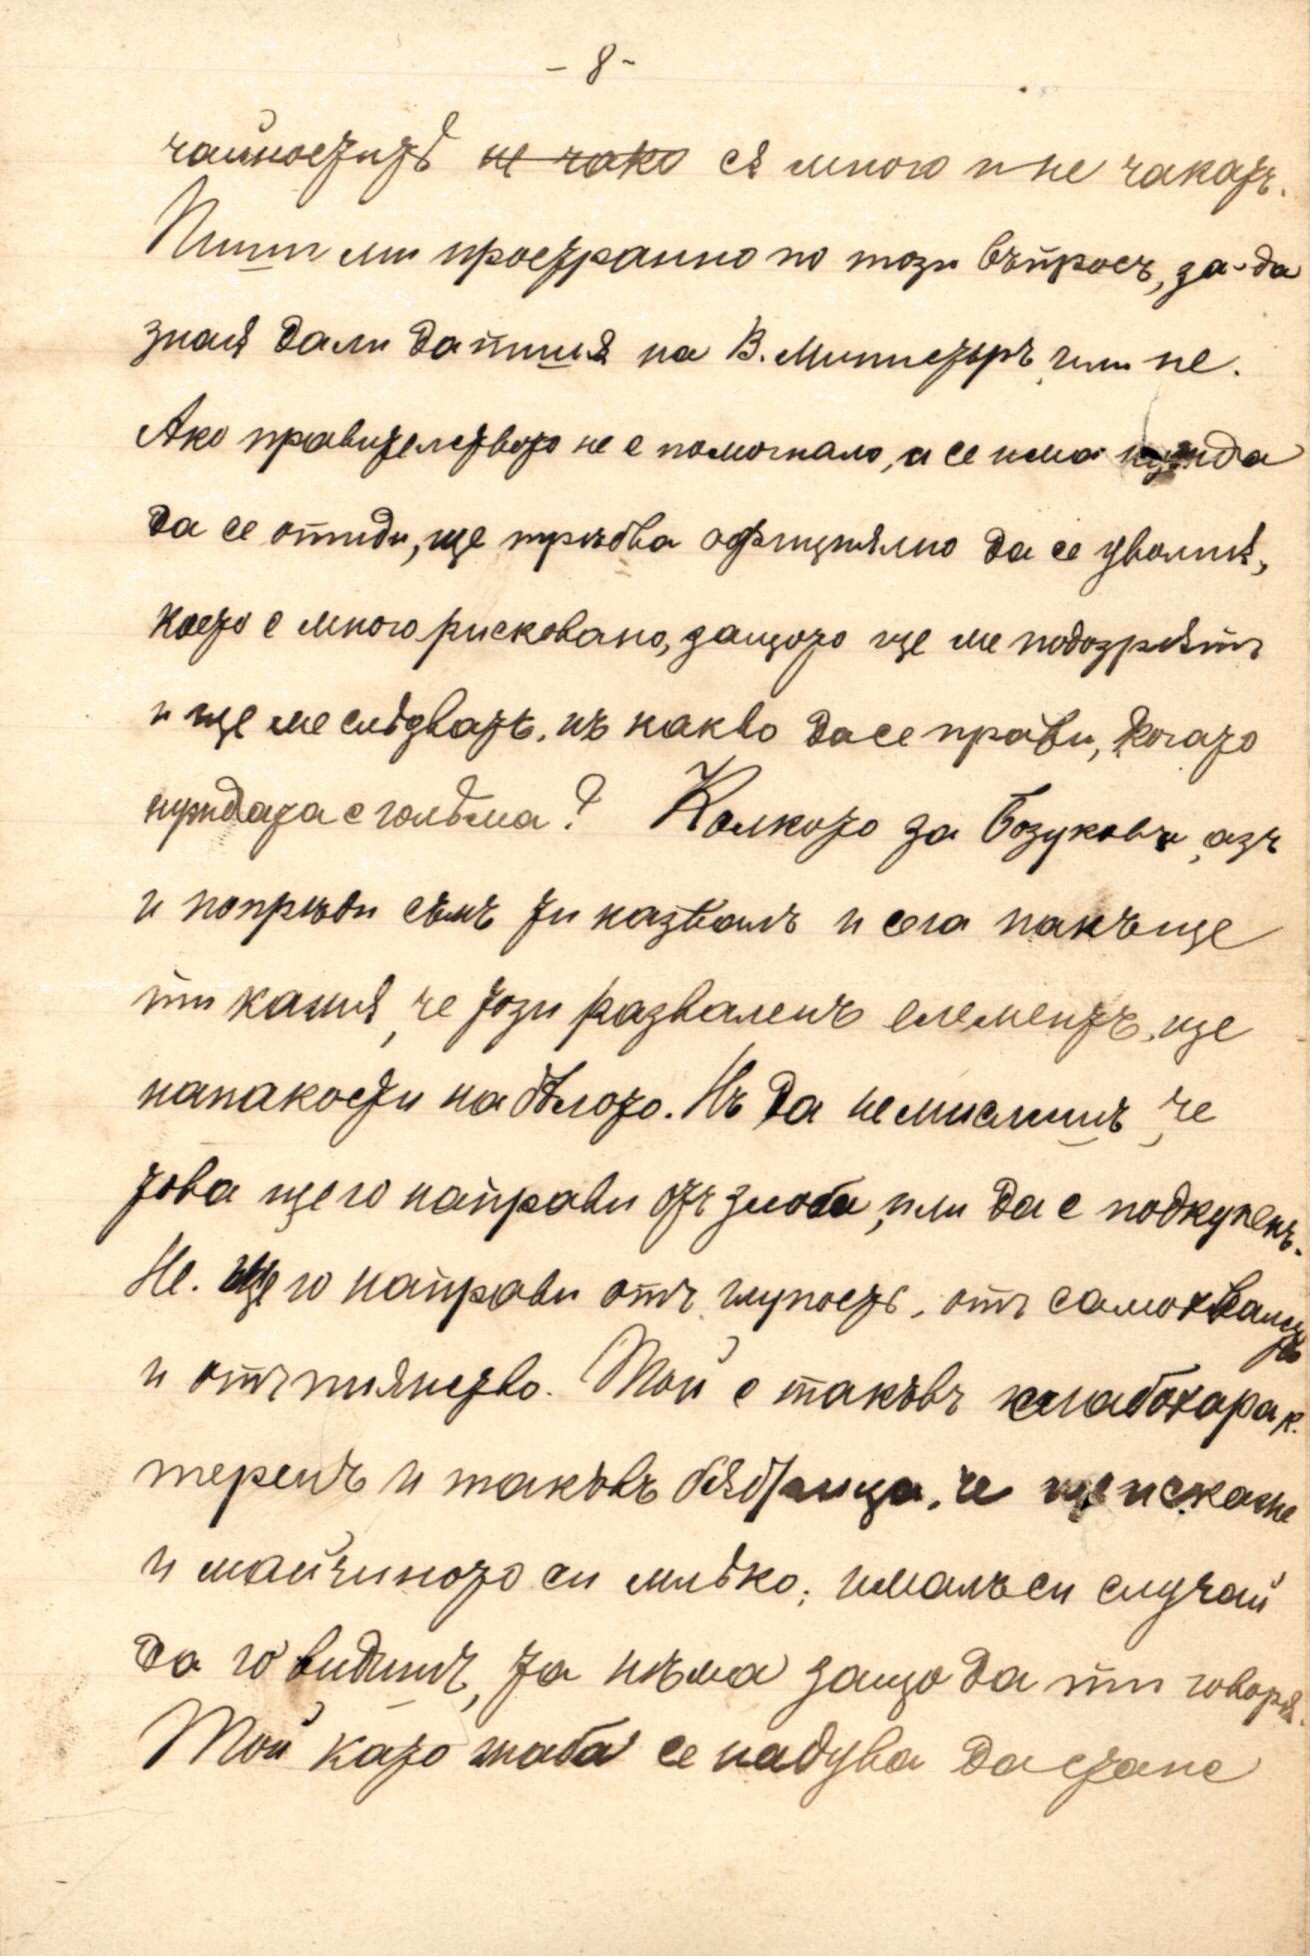 - 8 -
чайноститѣ не чако сѫ много и не чакатъ.
Пиши ми пространно по този въпросъ, за да
зная дали да пиша на В. Министъръ, или не.
Ако правителството не е помогнало, а се има нужда
да се отиди, ще трѣбва официялно да се уволнѭ,
което е много рисковано, защото ще ме подозрѫтъ
и ще ме слѣдватъ, нъ какво да се прави, когато
нуждата е голѣма? Колкото за Бозукова, азъ
и попрѣди съмъ ти казвалъ и сега пакъ ще
ти кажѫ, че този разваленъ елементъ, ще
напакости на дѣлото. Нъ да не мислишъ, че
това ще го направи отъ злоба, или да е подкупенъ.
Не. Ще го направи отъ глупость, отъ самохвалщ
и отъ пиянство. Той е такъвъ слабохарак
теренъ и такъвъ бѫбрица, че ще искаже
и майчиното си млѣко; ималъ си случай
да го видишъ, та нѣма защо да ти говорѭ.
Той като жаба се надува да стане